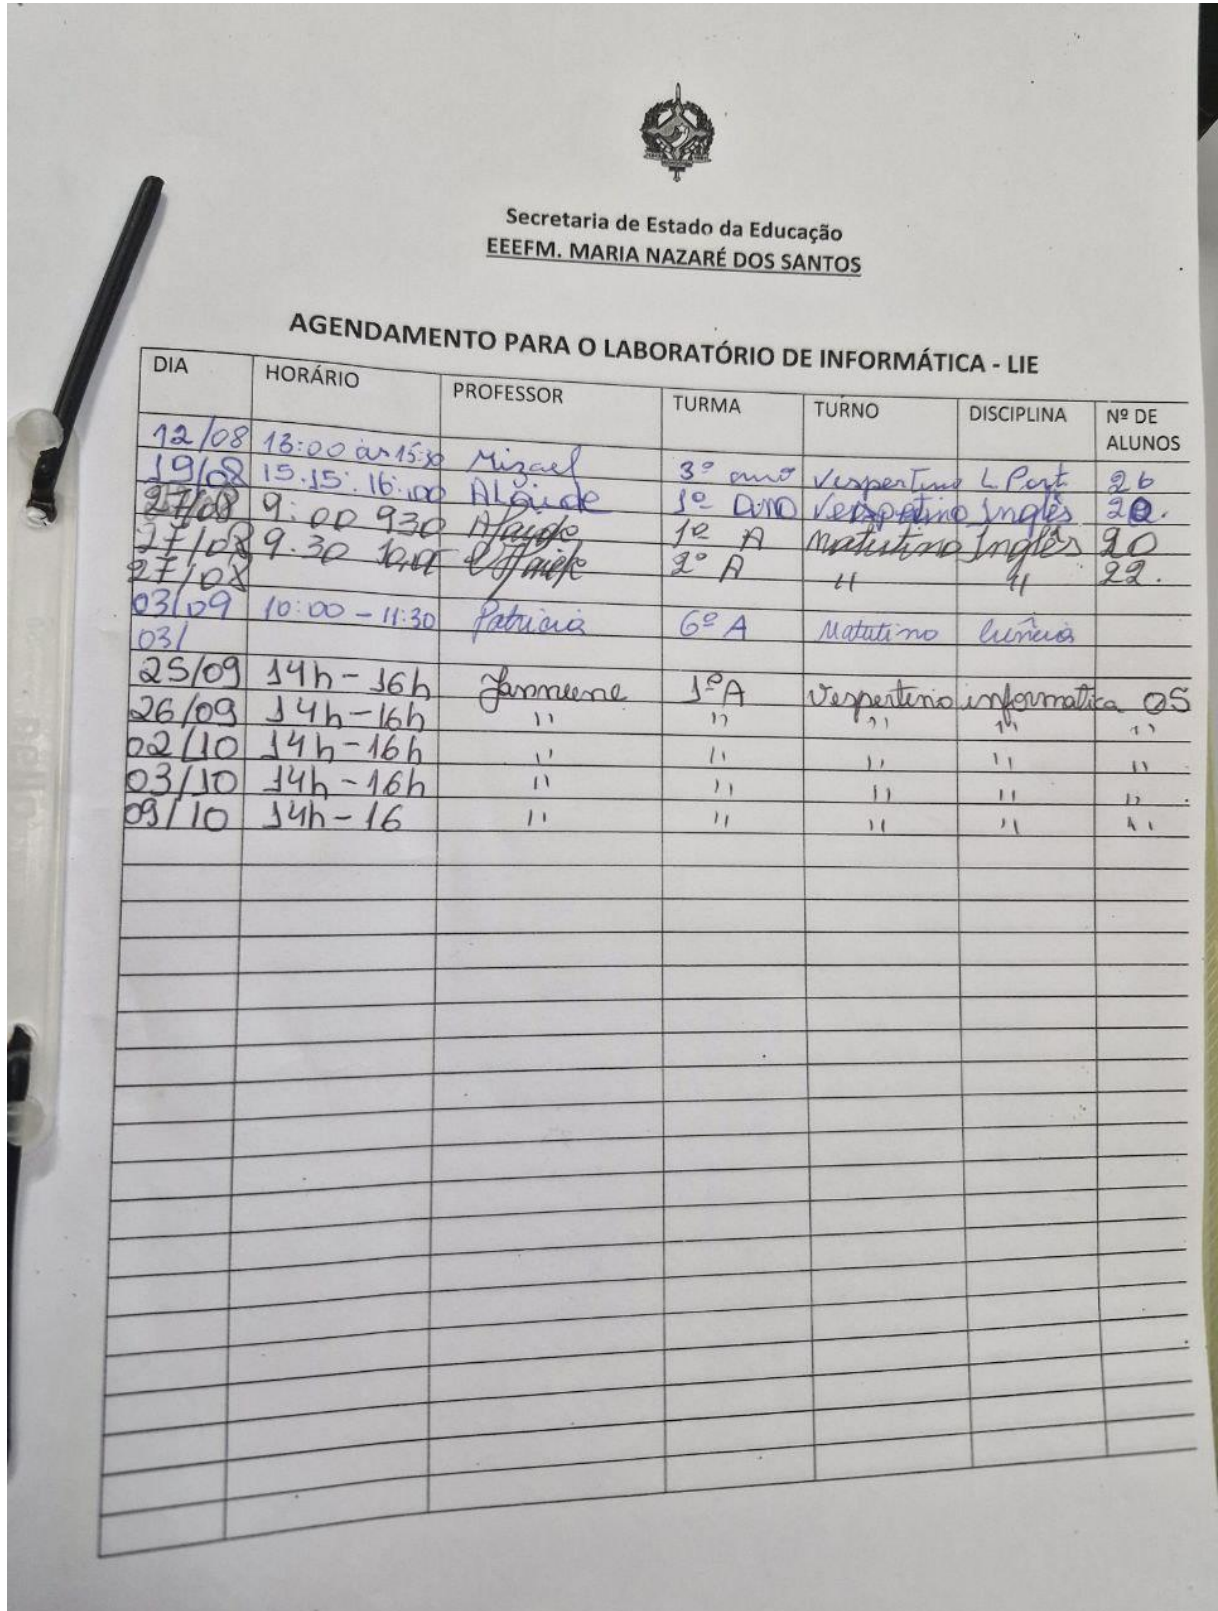 Secretaria de Estado da Educação
EEEFM. MARIA NAZARÉ DOS SANTOS
AGENDAMENTO PARA O LABORATÓRIO DE INFORMÁTICA - LIE
DIA HORÁRIO PROFESSOR TURMA TURNO DISCIPLINA Nº DE ALUNOS
12/08 13:00 às 15:30 Mizael 3º ano Vespertino L. Port 26
19/08 15.15: 16:00 Alaide 1º ano Vespertino Inglês 20.
27/08 9:00 930 Alaide 1º A Matutino Inglês 20
27/08 9.30 Alaide 2º A " " 22.
27/08
03/09 10:00 - 11:30 Patricia 6º A Matutino Ciência
03/
25/09 14h - 16h 1ºA Vespertino informatica 05
26/09 14h - 16h " " " " "
02/10 14h - 16h " " " " "
03/10 14h - 16h " " " " "
09/10 14h - 16 " " " " "